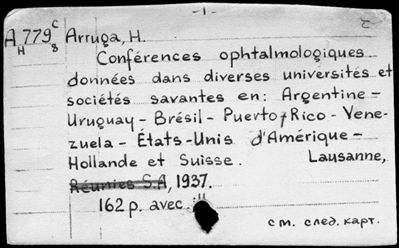 -1-
A 779 C
H 8
Arruga, H.
Conférences ophtalmologiques
données dans diverses universités et
sociétés savantes en: Argentine -
Uruguay - Brésil - Puerto Rico - Vene-
zuela - États-Unis d'Amérique -
Hollande et Suisse. Lausanne,
Réunies S.A, 1937.
162 p. avec ill
см. след. карт.